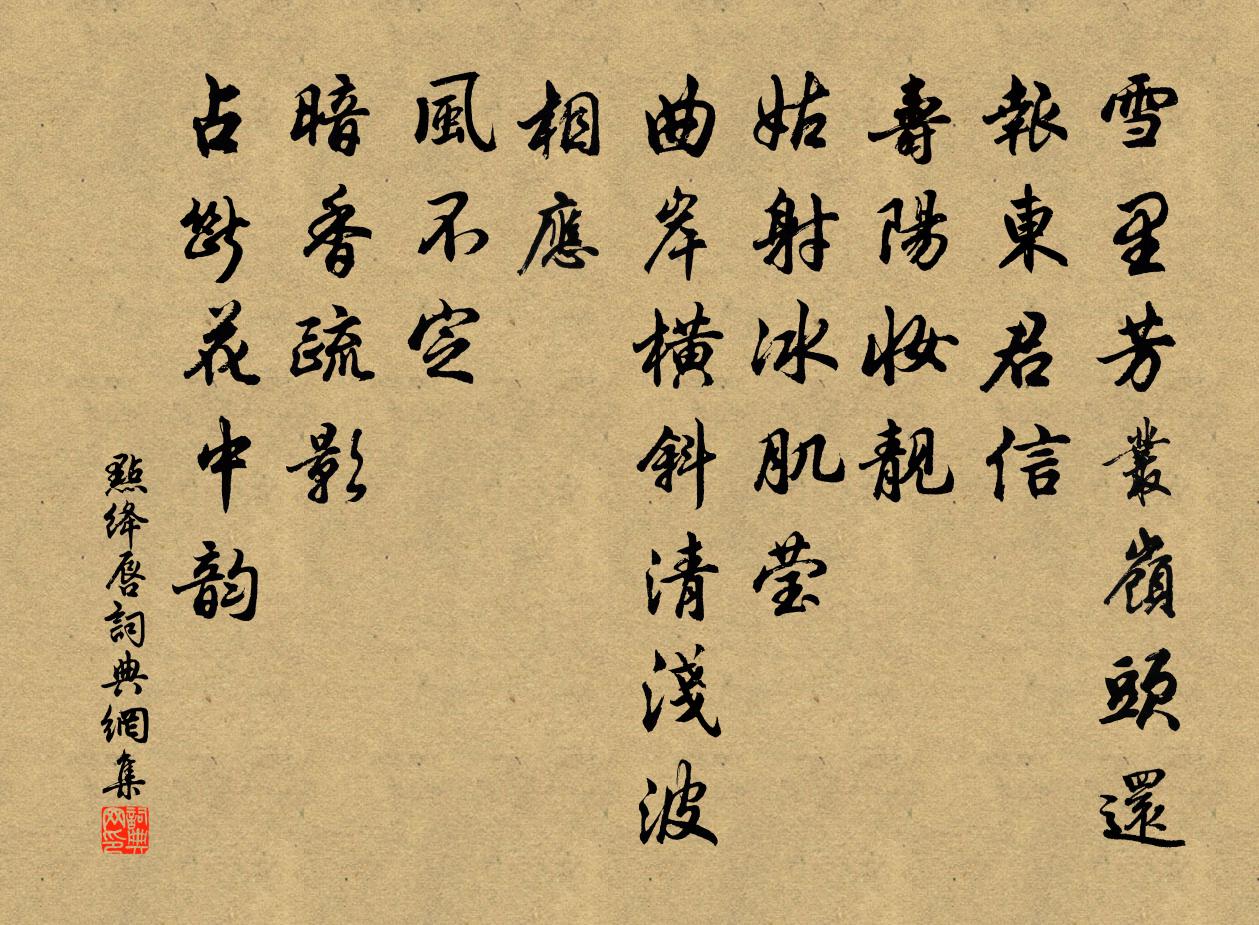 雪里芳叢嶺頭還
報東君信
壽陽妝靚
姑射冰肌瑩
曲岸橫斜清淺波
相應
風不定
暗香疏影
占斷花中韵
點絳唇詞典網集
詞典网印